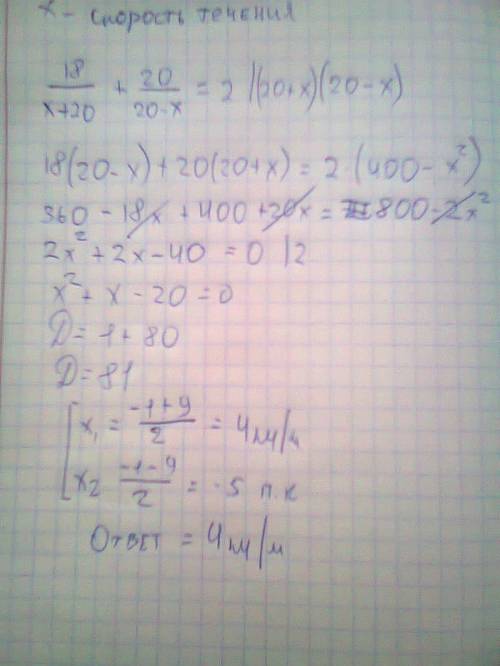 x - скорость течения
18/(x+20) + 20/(20-x) = 2 |(20+x)(20-x)
18(20-x)+20(20+x) = 2·(400-x²)
360 - 18x + 400 + 20x = 800-2x²
2x² + 2x - 40 = 0 |2
x² + x - 20 = 0
D = 1 + 80
D = 81
[x₁ = (-1+9)/2 = 4 км/ч
x₂ (-1-9)/2 = -5 п.к
Ответ = 4 км/ч